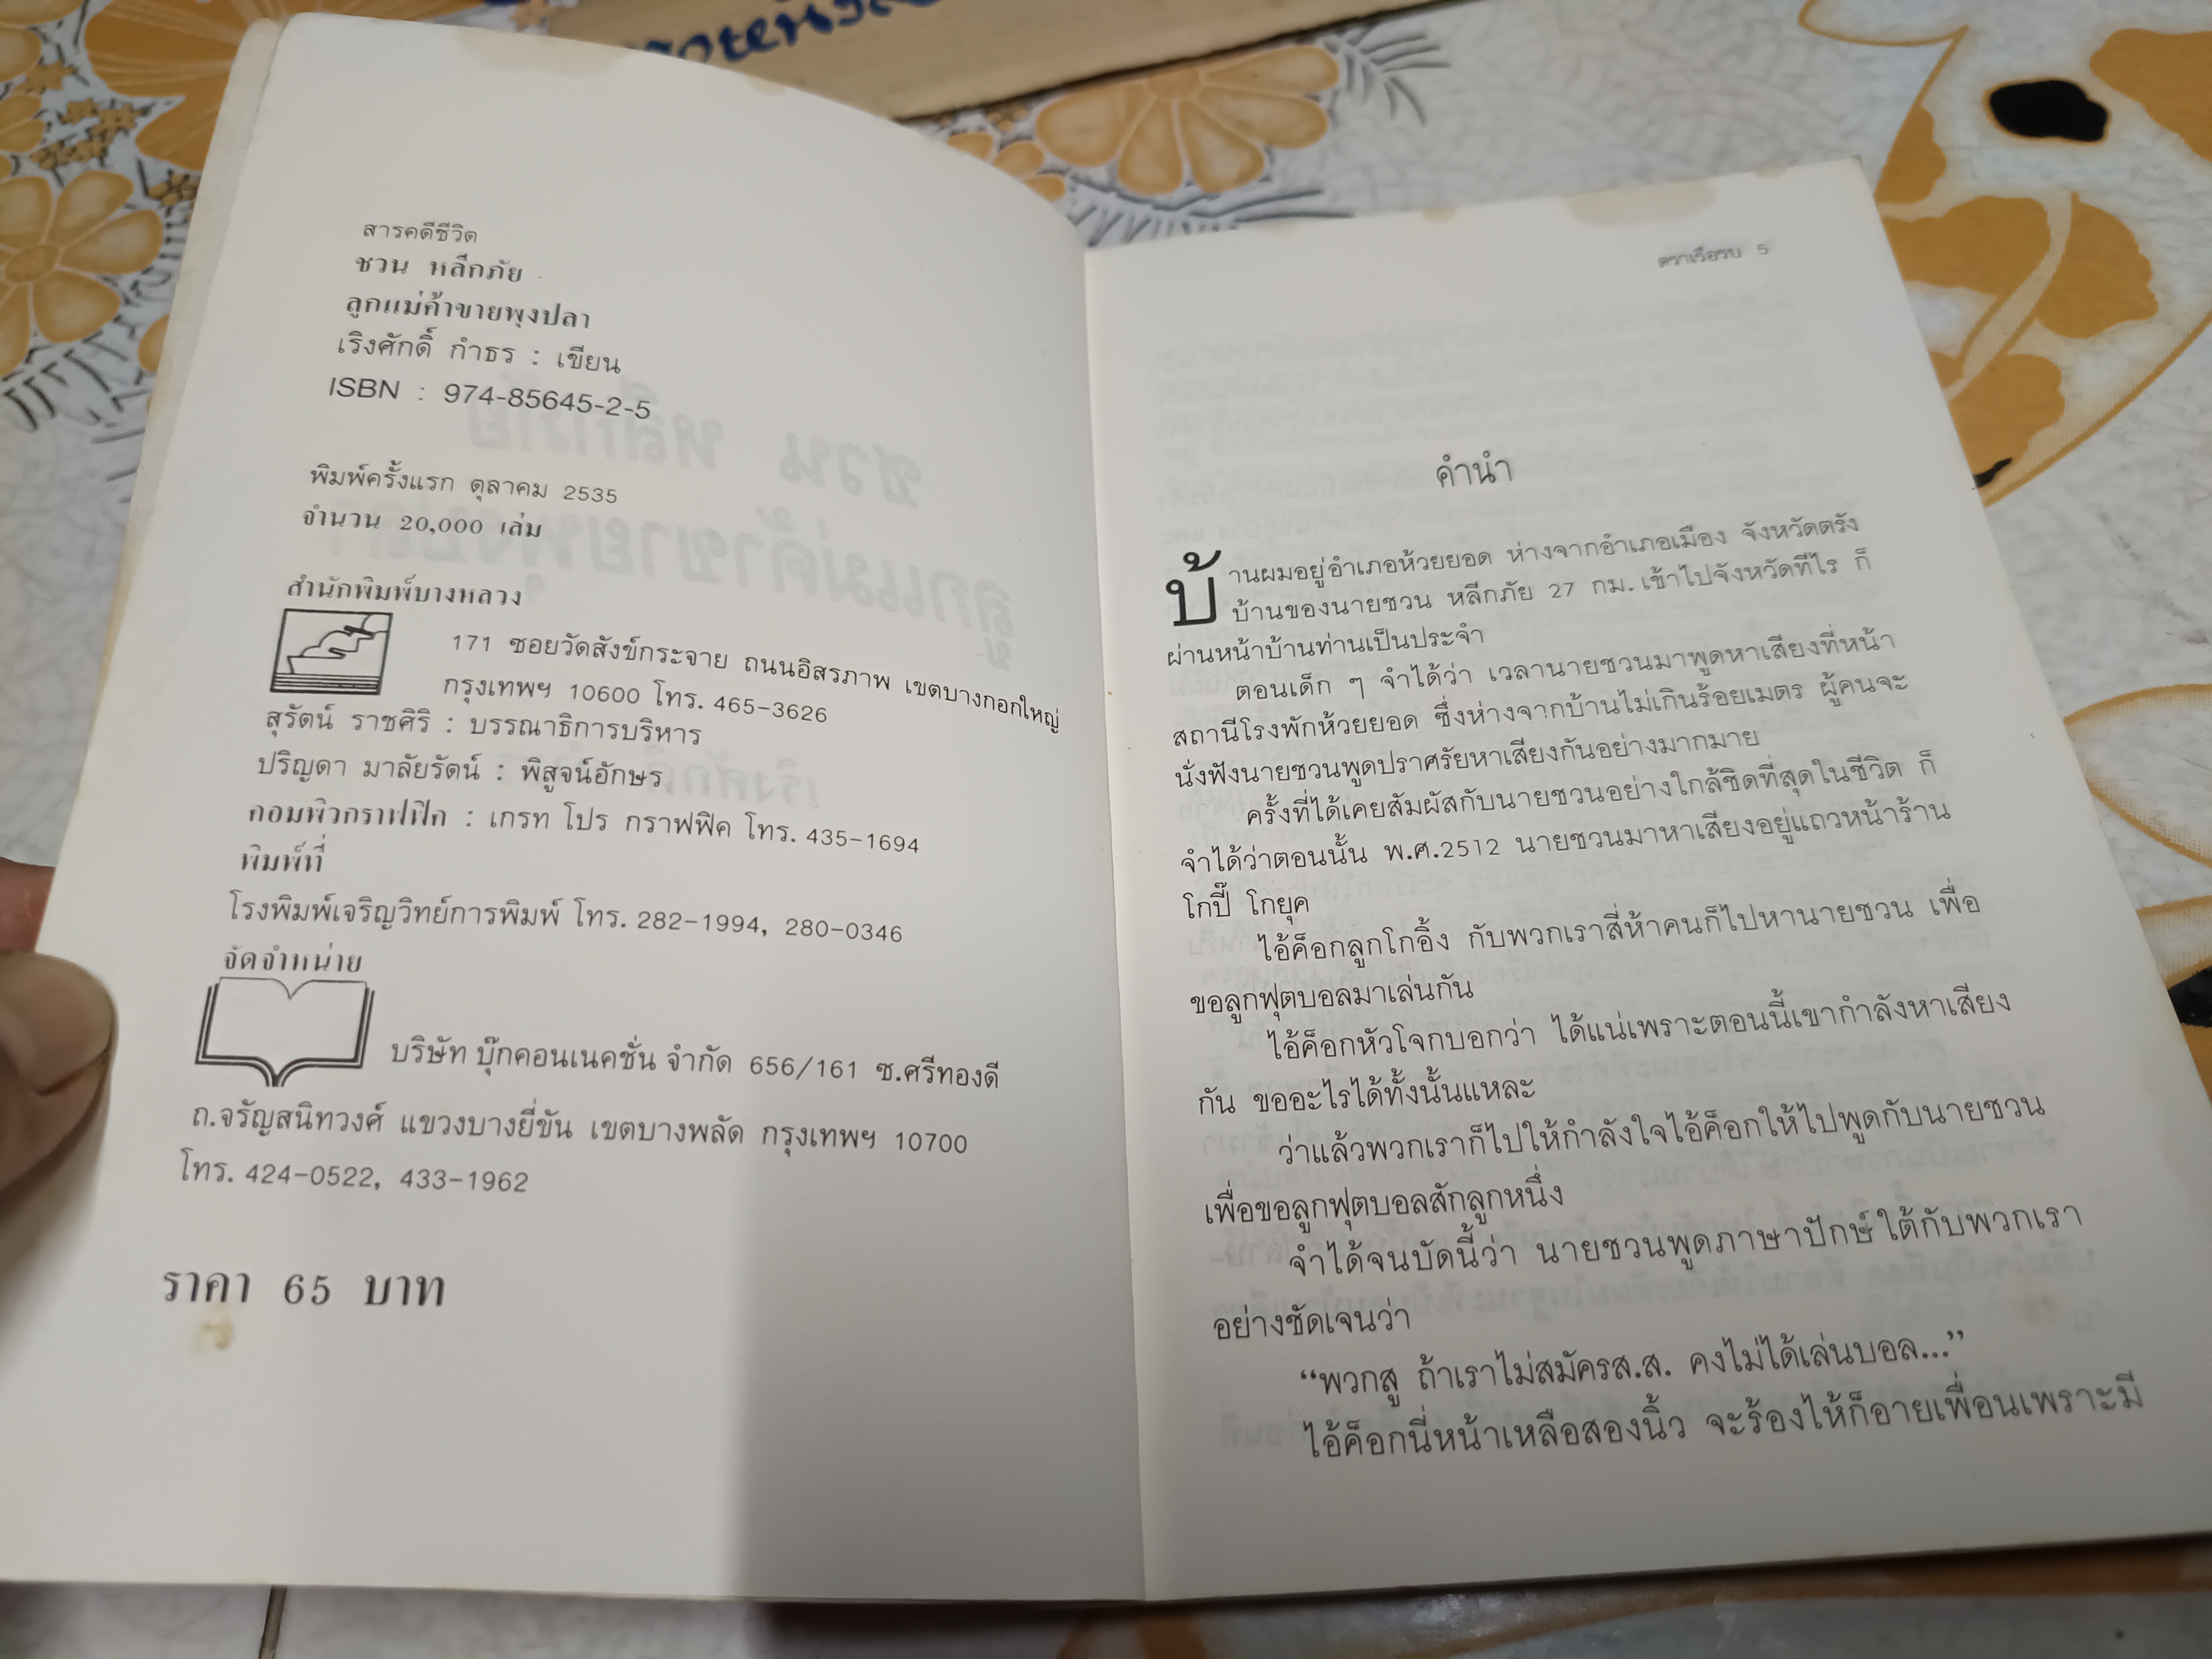 สารคดีชีวิต
ชวน หลีกภัย
ลูกแม่ค้าขายพุงปลา
เริงศักดิ์ กำธร : เขียน
ISBN : 974-85645-2-5
พิมพ์ครั้งแรก ตุลาคม 2535
จำนวน 20,000 เล่ม
สำนักพิมพ์บางหลวง
171 ซอยวัดสังข์กระจาย ถนนอิสรภาพ เขตบางกอกใหญ่
กรุงเทพฯ 10600 โทร. 465-3626
สุรัตน์ ราชศิริ : บรรณาธิการบริหาร
ปริญดา มาลัยรัตน์ : พิสูจน์อักษร
คอมพิวกราฟฟิค : เกรท โปร กราฟฟิค โทร. 435-1694
พิมพ์ที่
โรงพิมพ์เจริญวิทย์การพิมพ์ โทร. 282-1994, 280-0346
จัดจำหน่าย
บริษัท บุ๊กคอนเนคชั่น จำกัด 656/161 ซ.ศรีทองดี
ถ.จรัญสนิทวงศ์ แขวงบางยี่ขัน เขตบางพลัด กรุงเทพฯ 10700
โทร. 424-0522, 433-1962
ราคา 65 บาท
ตราเรือรบ 5
คำนำ
บ้านผมอยู่อำเภอห้วยยอด ห่างจากอำเภอเมือง จังหวัดตรัง
บ้านของนายชวน หลีกภัย 27 กม. เข้าไปจังหวัดทีไร ก็
ผ่านหน้าบ้านท่านเป็นประจำ
ตอนเด็ก ๆ จำได้ว่า เวลานายชวนมาพูดหาเสียงที่หน้า
สถานีโรงพักห้วยยอด ซึ่งห่างจากบ้านไม่เกินร้อยเมตร ผู้คนจะ
นั่งฟังนายชวนพูดปราศรัยหาเสียงกันอย่างมากมาย
ครั้งที่ได้เคยสัมผัสกับนายชวนอย่างใกล้ชิดที่สุดในชีวิต ก็
จำได้ว่าตอนนั้น พ.ศ.2512 นายชวนมาหาเสียงอยู่แถวหน้าร้าน
โกปี๊ โกยุค
ไอ้ค็อกลูกโกอิ้ง กับพวกเราสี่ห้าคนก็ไปหานายชวน เพื่อ
ขอลูกฟุตบอลมาเล่นกัน
ไอ้ค็อกหัวโจกบอกว่า ได้แน่เพราะตอนนี้เขากำลังหาเสียง
กัน ขออะไรได้ทั้งนั้นแหละ
ว่าแล้วพวกเราก็ไปให้กำลังใจไอ้ค็อกให้ไปพูดกับนายชวน
เพื่อขอลูกฟุตบอลสักลูกหนึ่ง
จำได้จนบัดนี้ว่า นายชวนพูดภาษาปักษ์ใต้กับพวกเรา
อย่างชัดเจนว่า
“พวกสู ถ้าเราไม่สมัครส.ส. คงไม่ได้เล่นบอล...”
ไอ้ค็อกนี่หน้าเหลือสองนิ้ว จะร้องไห้ก็อายเพื่อนเพราะมี